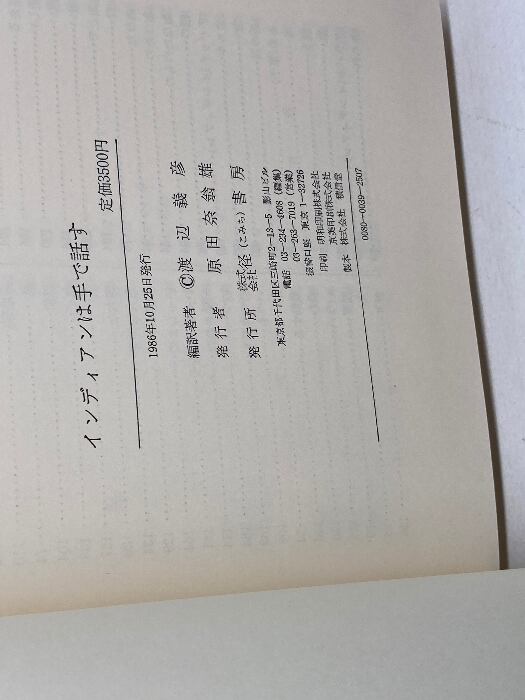 インディアンは手で話す
定価3500円
1986年10月25日発行
編訳著者 ©渡辺義彦
発行者 原田奈翁雄
発行所 株式会社径(こみち)書房
東京都千代田区三崎町2-13-5 影山ビル
電話 03-234-4608(編集)
03-263-7019(営業)
振替口座 東京1-32726
印刷 明和印刷株式会社
京美印刷株式会社
製本 株式会社 積信堂
0080-0039-2507